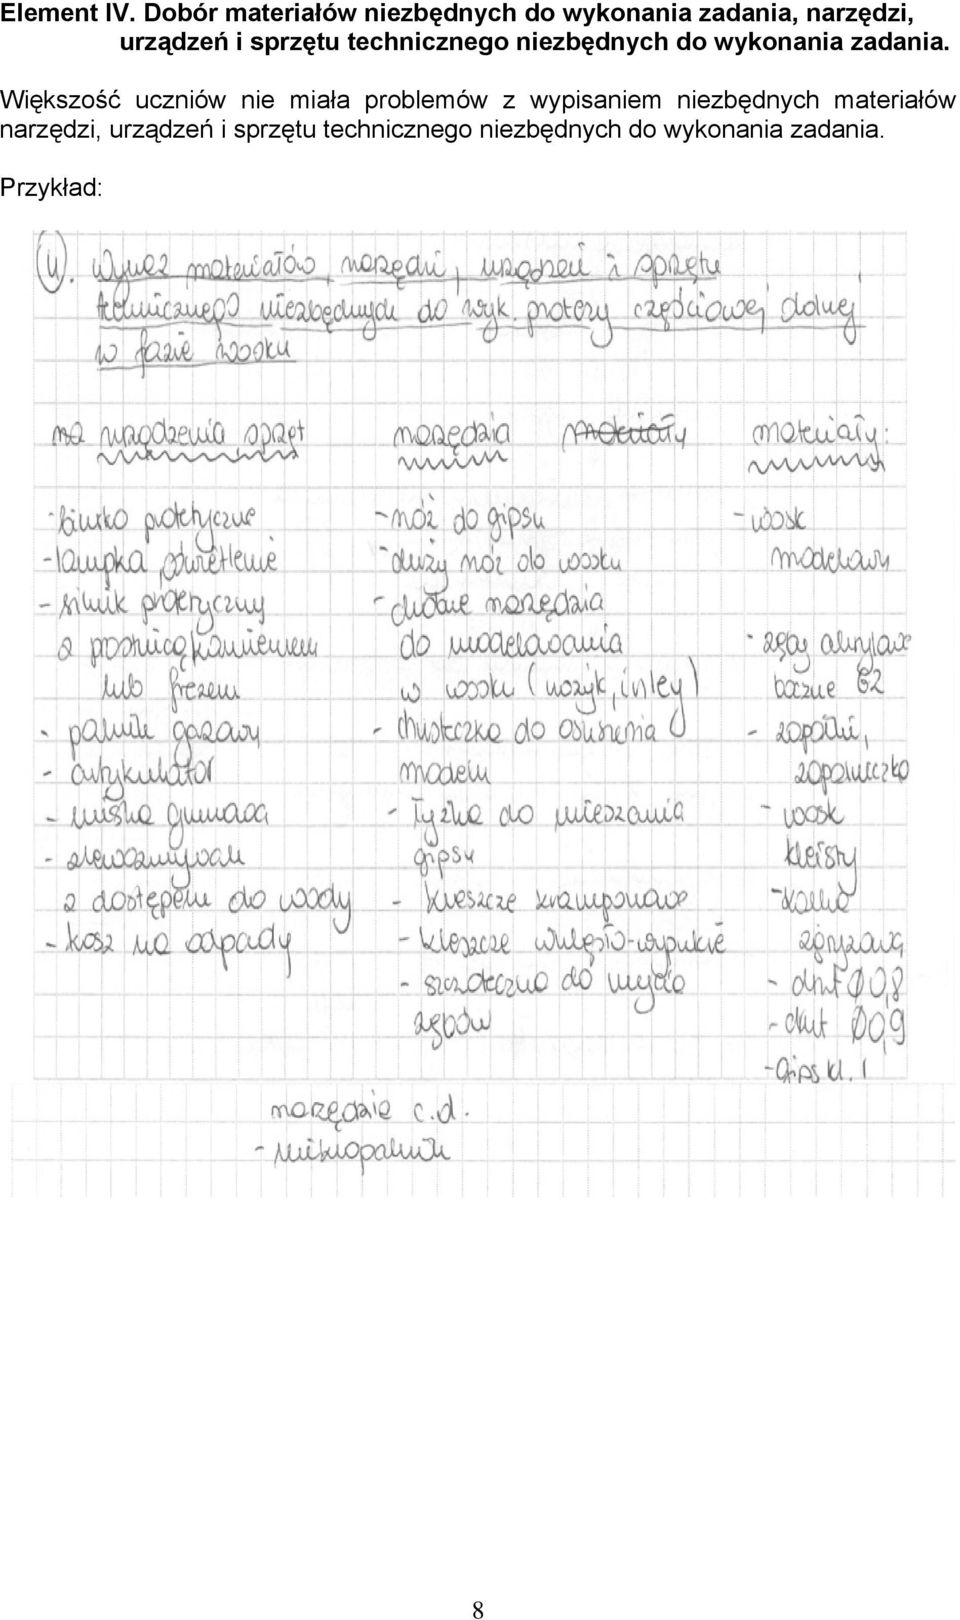 Element IV. Dobór materiałów niezbędnych do wykonania zadania, narzędzi,
urządzeń i sprzętu technicznego niezbędnych do wykonania zadania.
Większość uczniów nie miała problemów z wypisaniem niezbędnych materiałów
narzędzi, urządzeń i sprzętu technicznego niezbędnych do wykonania zadania.
Przykład:
4. Wykaz materiałów, narzędzi, urządzeń i sprzętu
technicznego niezbędnych do wyk. protezy częściowej dolnej
w fazie wosku
urządzenia sprzęt
- biurko protetyczne
- lampka, oświetlenie
- silnik protetyczny
z prośnicą kamieniem
lub frezem
- palnik gazowy
- artykulator
- miska gumowa
- zlewozmywak
z dostępem do wody
- kosz na odpady
narzędzia
- nóż do gipsu
- duży nóż do wosku
- drobne narzędzia
do modelowania
w wosku (nożyk, inley)
- chusteczka do osuszenia
modelu
- łyżka do mieszania
gipsu
- kleszcze kramponowe
- kleszcze wklęsło-wypukłe
- szczoteczka do mycia
zębów
materiały
materiały:
- wosk
modelowy
- zęby akrylowe
boczne G2
- zapałki,
zapalniczka
- wosk
kleisty
- kalka
zgryzowa
- drut Ø0,8
- drut Ø0,9
- Gips kl. I
narzędzia c.d.
- mikropalnik
8